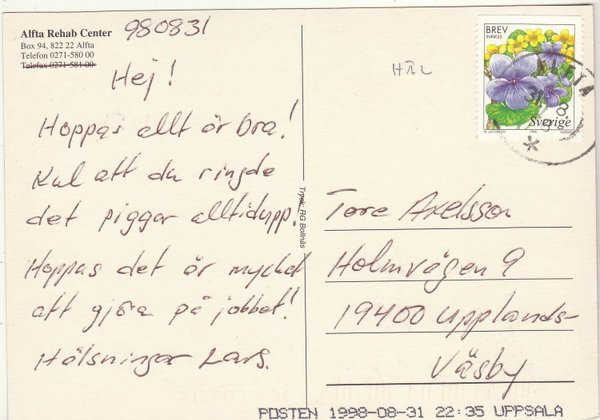 Alfta Rehab Center
Box 94, 822 22 Alfta
Telefon 0271-580 00
Telefax 0271-581 00
980831
Hej!
Hoppas allt är bra!
Kul att du ringde
det piggar alltidupp.
Hoppas det är mycket
att gjöra på jobbet!
Hälsningar Lars.
Tryck: RG Bollnäs
BREV
INRIKES
Sverige
ALFTA
Tore Axelsson
Holmvägen 9
19400 Upplands-
Väsby
POSTEN 1998-08-31 22:35 UPPSALA